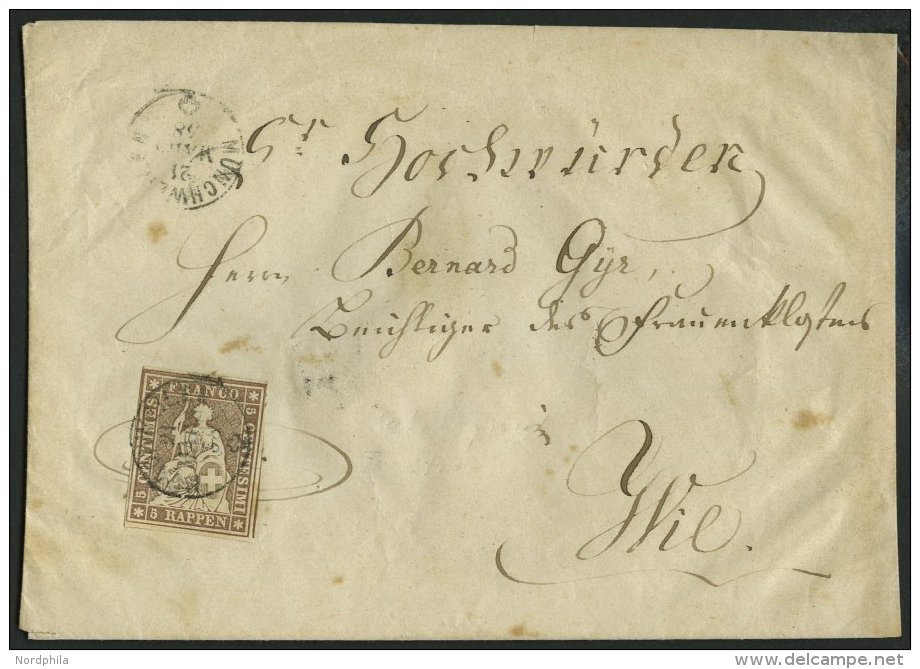 MÜNCHWEILEN
21
MARS
58
Sr Hochwürden
Herrn Bernard Gÿr,
Beichtiger des Frauenklosters
in
Wil.
FRANCO
5 CENTIMES
5 CENTESIMI
5 RAPPEN
Nordphila
delcampe.net